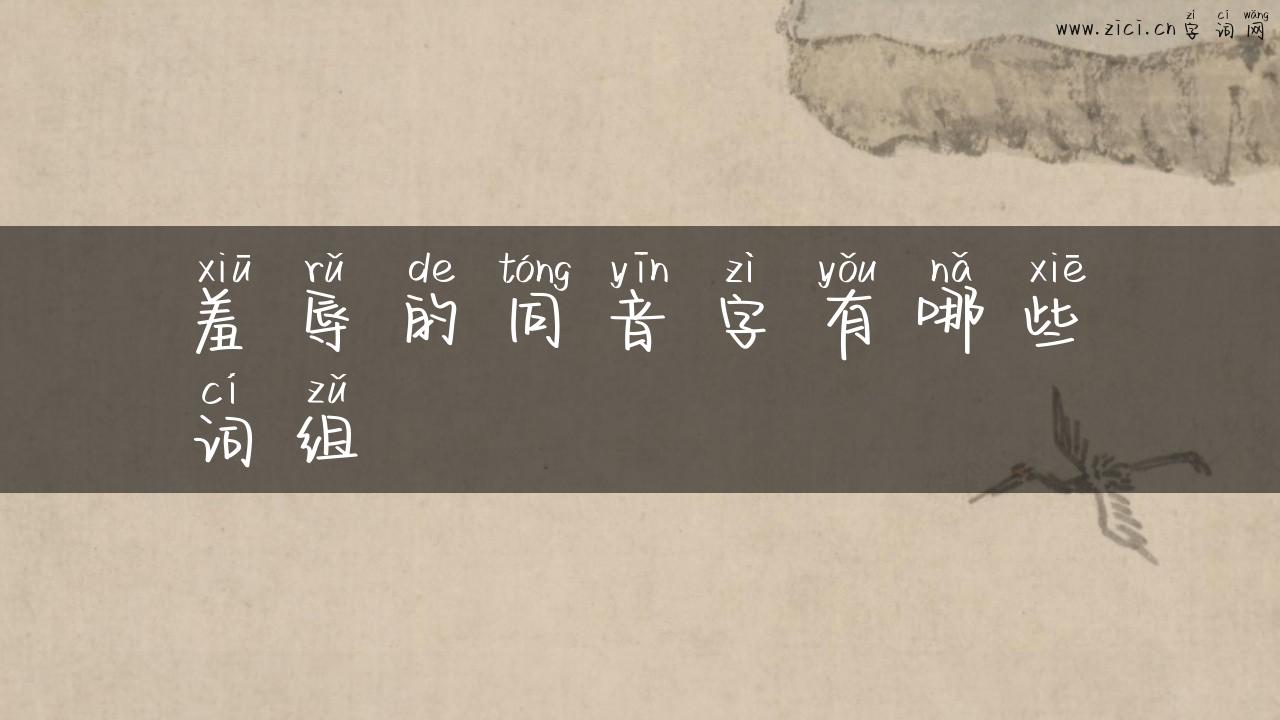 zì cí wǎng
www.zici.cn字词网
xiū rǔ de tóng yīn zì yǒu nǎ xiē
羞辱的同音字有哪些
cí zǔ
词组